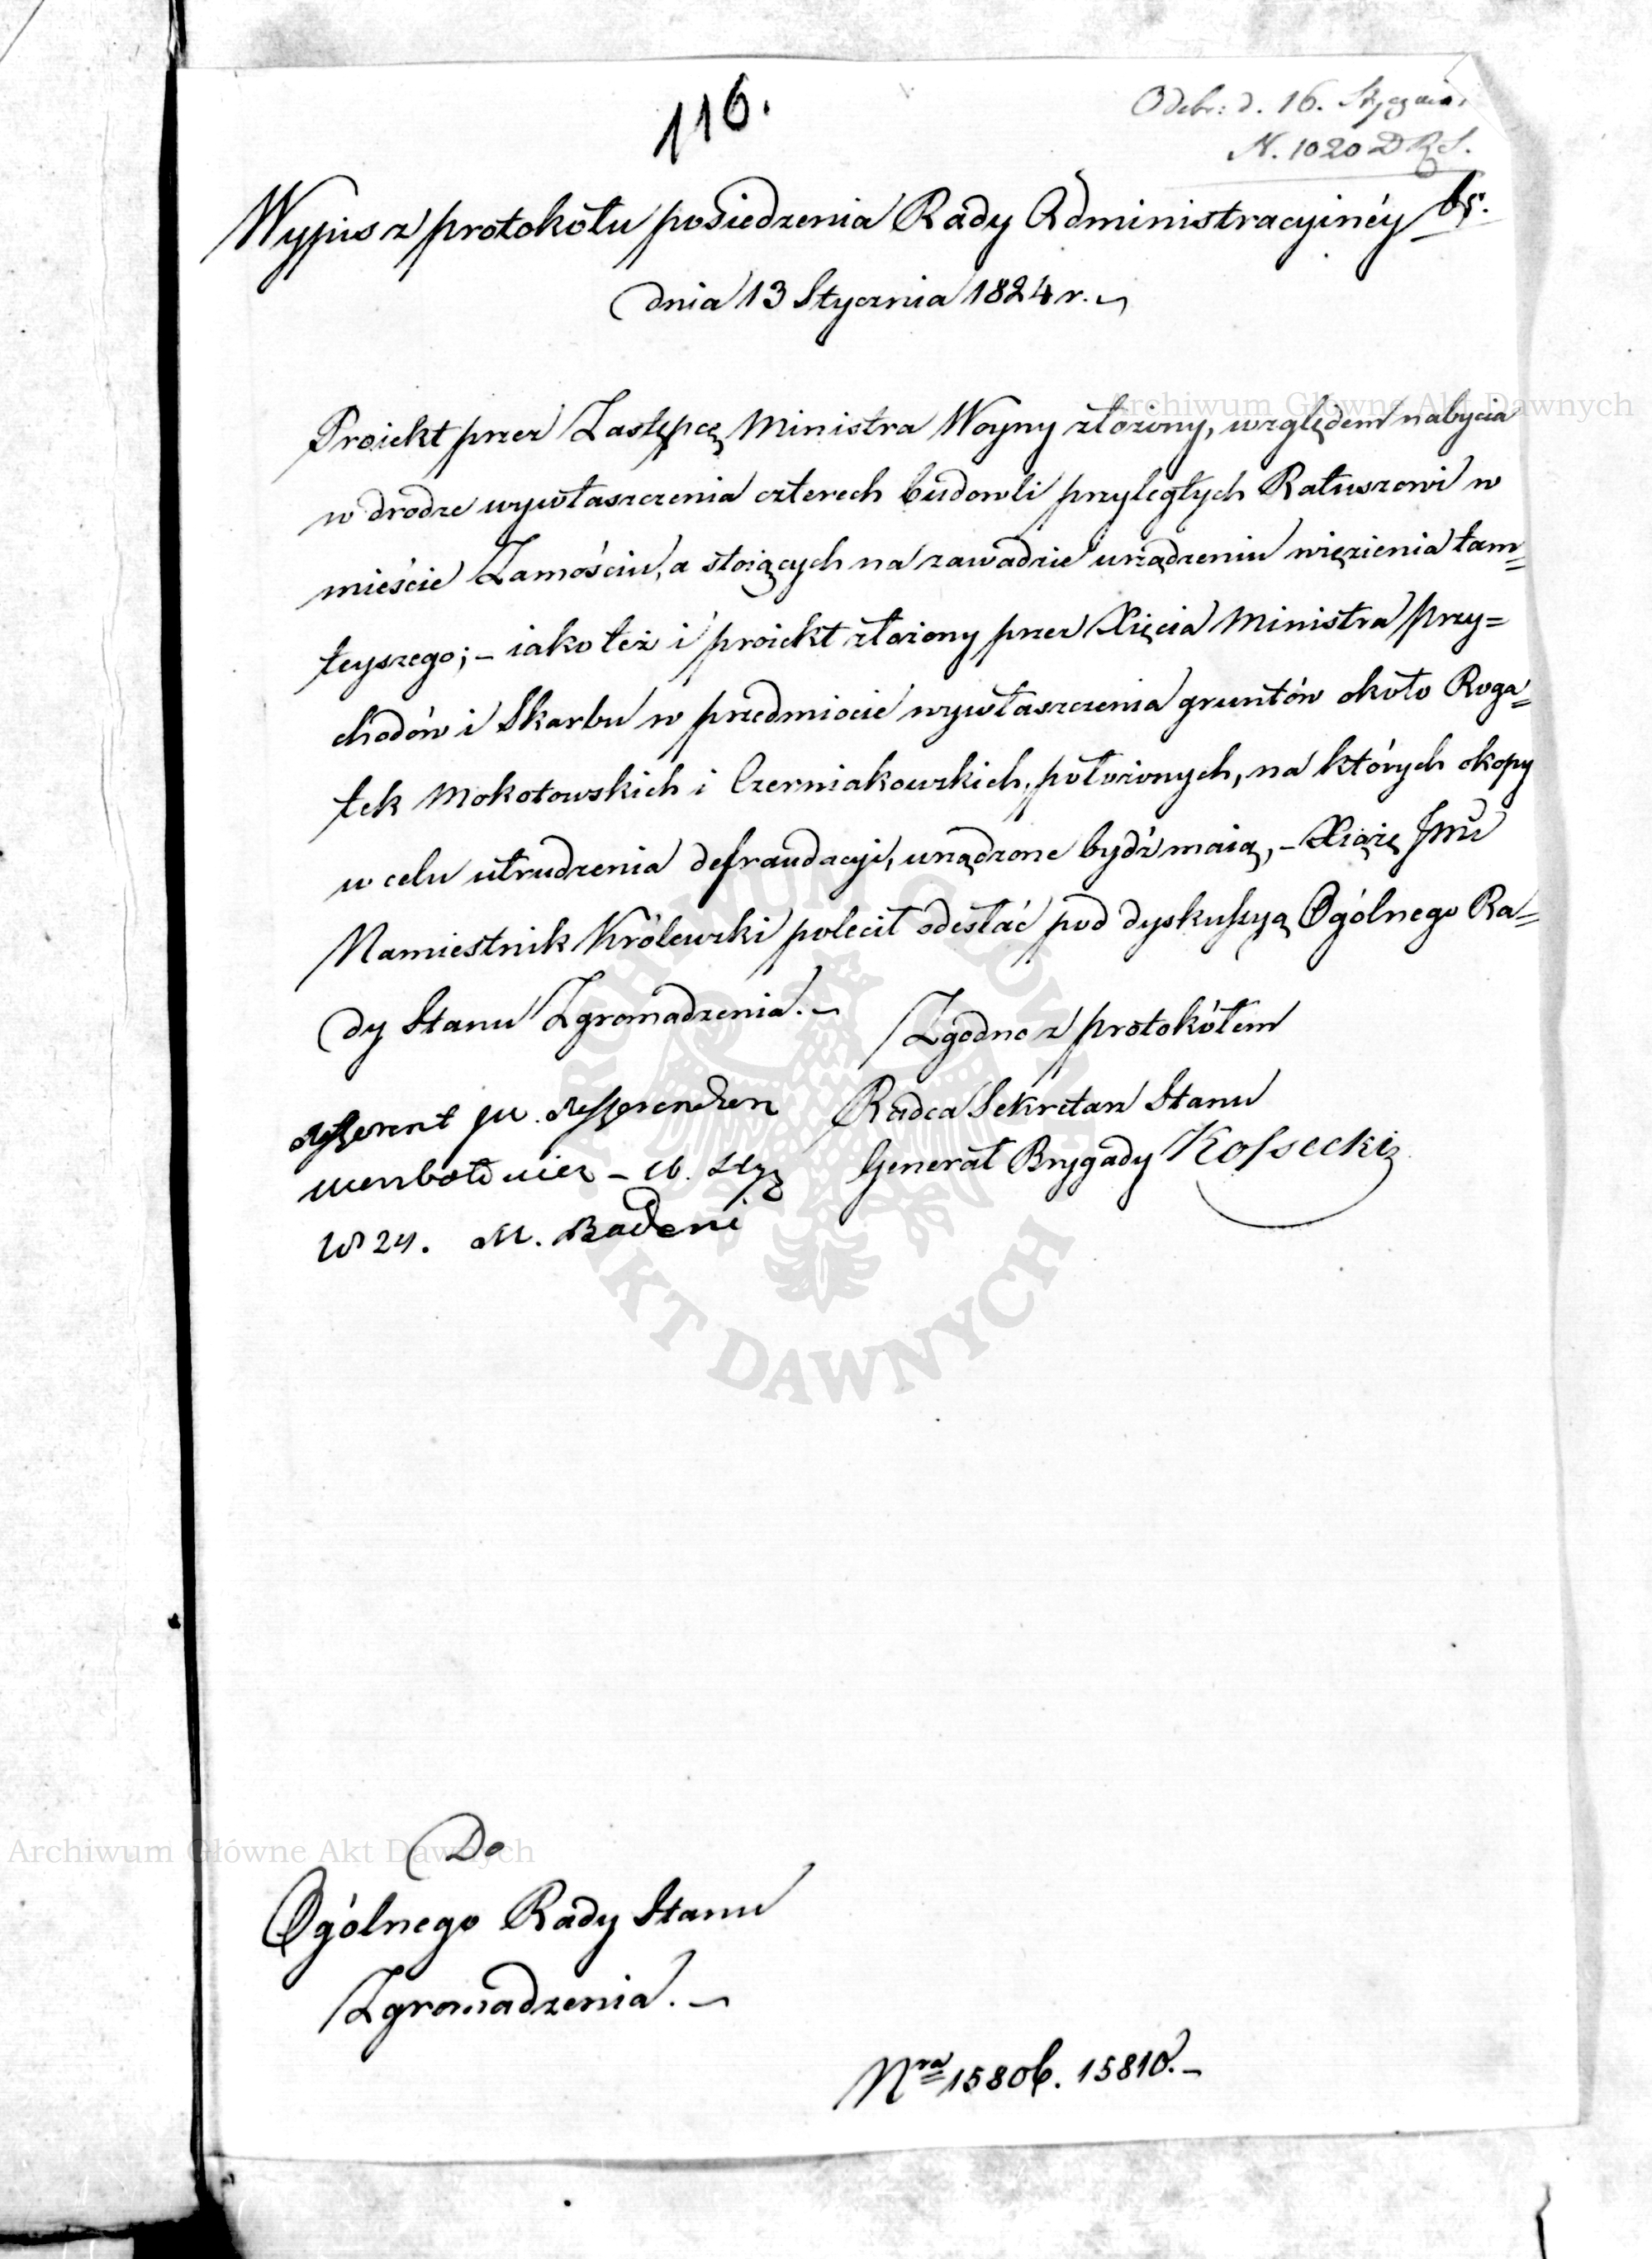 116.
Odebr: d. 16. Stycznia.
N. 1020 DRS.
Wypis z protokołu posiedzenia Rady Administracyinéy
dnia 13 Stycznia 1824 r.
Archiwum Główne Akt Dawnych
Proiekt przez Zastępcę Ministra Woyny złożony, względem nabycia
w drodze wywłaszczenia czterech budowli przyległych Ratuszowi w
mieście Zamościu, a stoiących na zawadzie urządzeniu więzienia tam=
teyszego; – iako też i proiekt złożony przez Xięcia Ministra Przy=
chodów i Skarbu w przedmiocie wywłaszczenia gruntów około Roga=
tek Mokotowskich i Czerniakowskich, położonych, na których okopy
w celu utrudzenia defraudacyi, urządzone bydź maią, – Xiążę Jmć
Namiestnik Królewski polecił odesłać pod dyskussyą Ogólnego Ra=
dy Stanu Zgromadzenia. –
Zgodno z protokółem
Radca Sekretarz Stanu
Generał Brygady Kossecki
Referent JW. Referendarz
16.
1824. M. Badeni
ARCHIWUM GŁÓWNE AKT DAWNYCH
Archiwum Główne Akt Dawnych
Do
Ogólnego Rady Stanu
Zgromadzenia. –
Nra 15806. 15810. –